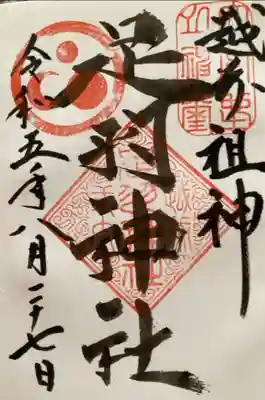 越前祖神
足羽神社
令和五年八月二十七日